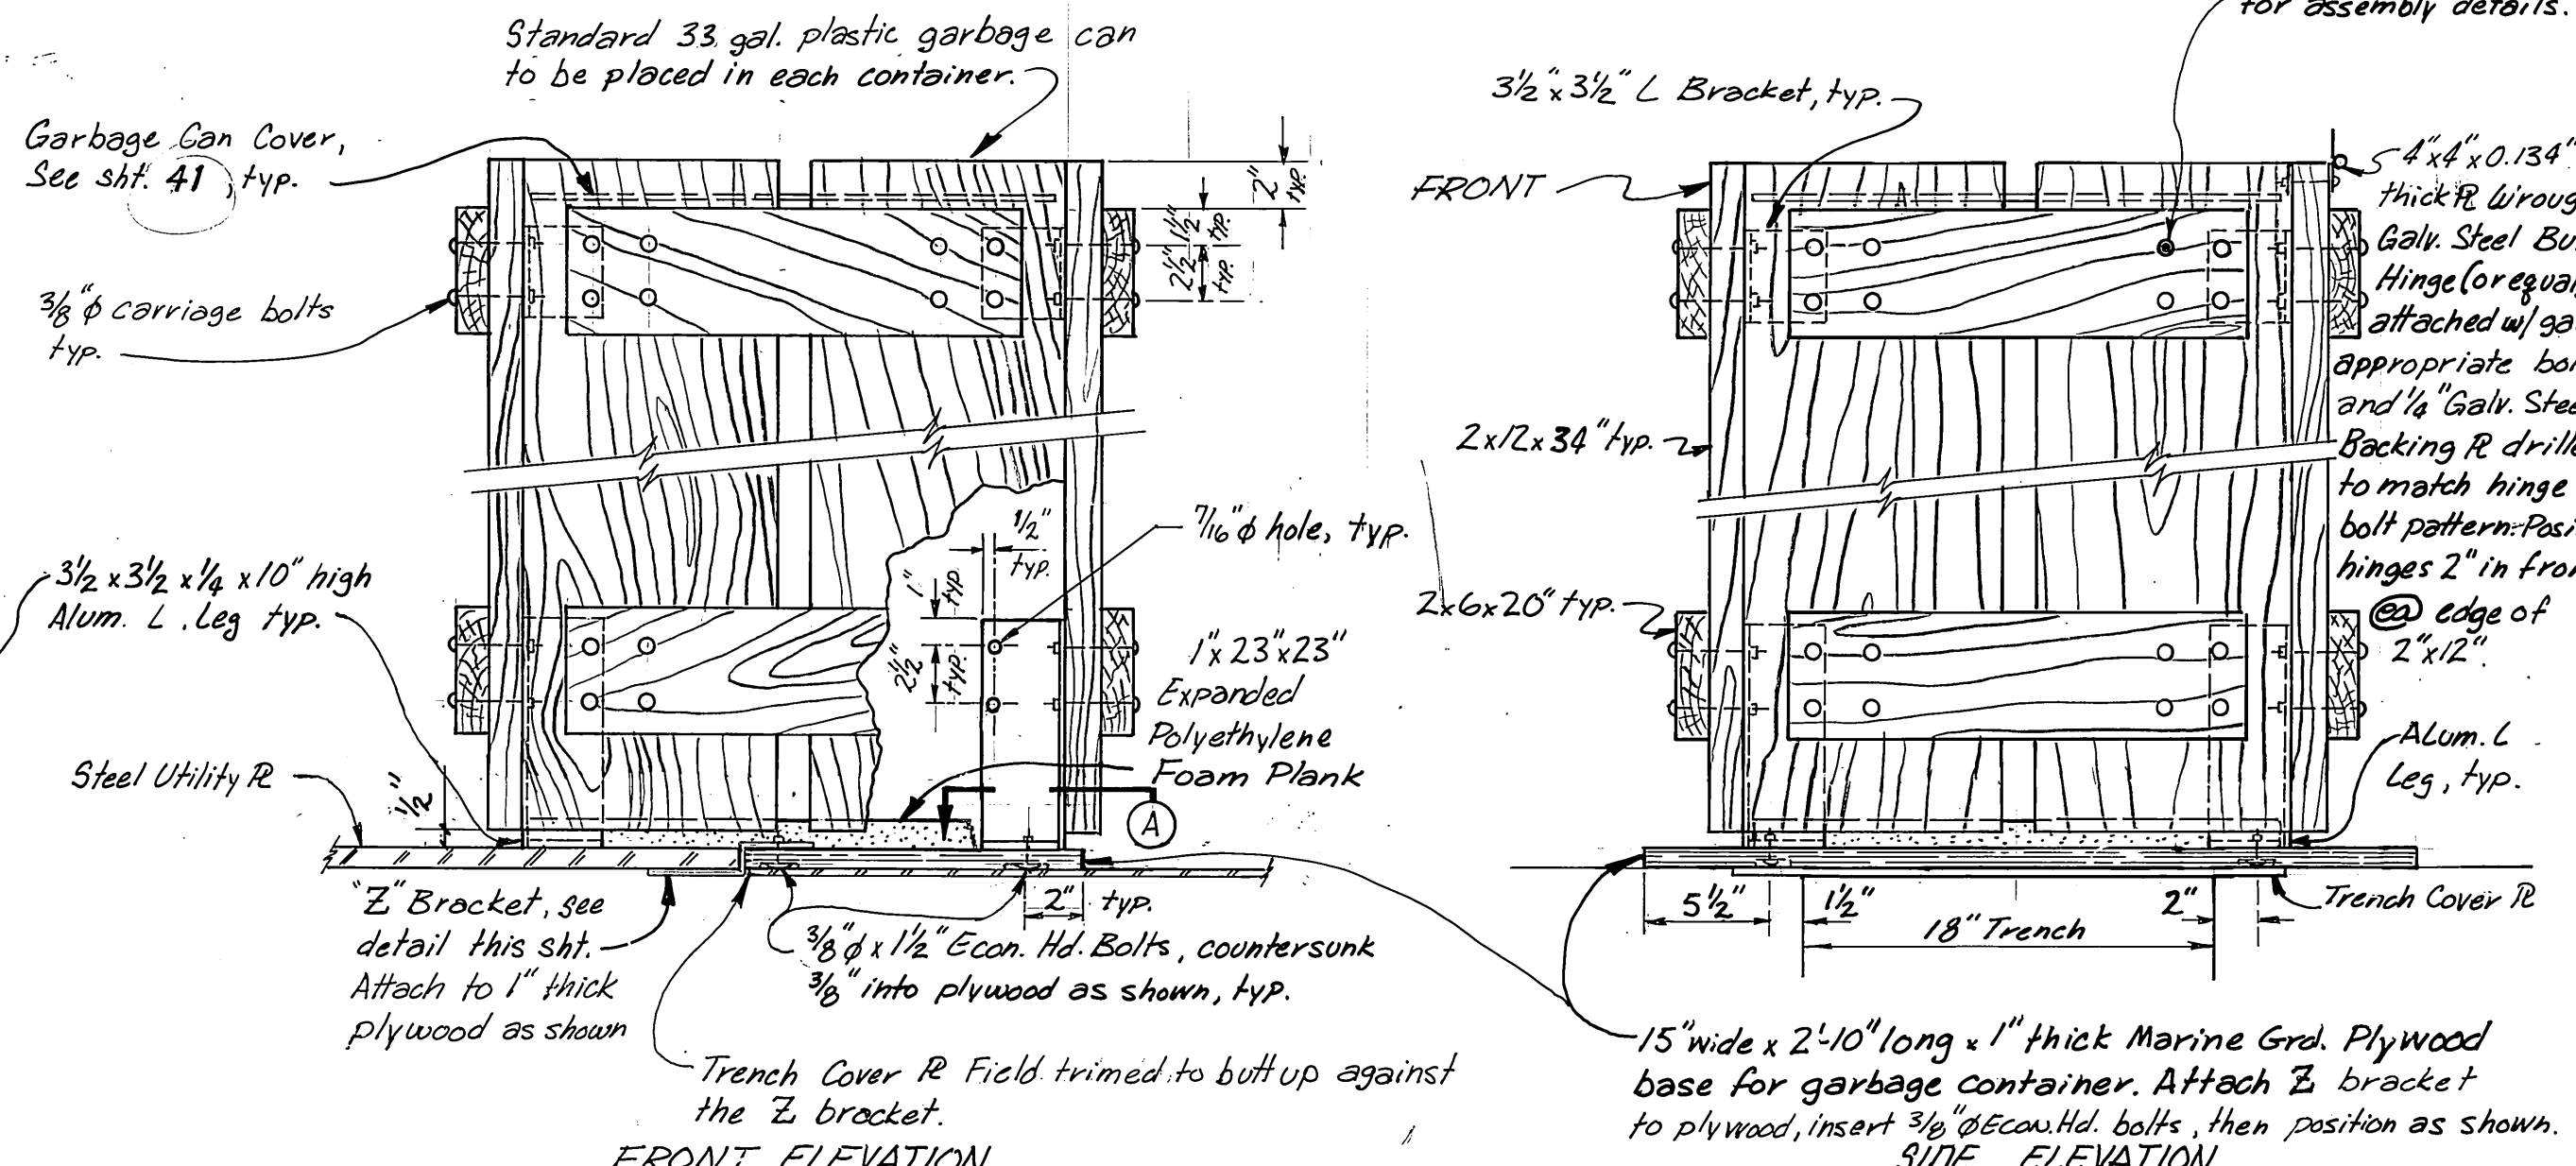 Standard 33 gal. plastic garbage can
to be placed in each container.
Garbage Can Cover,
See sht. 41, typ.
3/8"φ carriage bolts
typ.
2"
typ.
1 1/2"
typ.
2 1/2"
typ.
3 1/2 x 3 1/2 x 1/4 x 10" high
Alum. L Leg typ.
1/2"
typ.
7/16"φ hole, typ.
1"
typ.
2 1/2"
typ.
1" x 23" x 23"
Expanded
Polyethylene
Foam Plank
A
Steel Utility PL
1/2"
"Z" Bracket, see
detail this sht.
Attach to 1" thick
plywood as shown
2" typ.
3/8"φ x 1 1/2" Econ. Hd. Bolts, countersunk
3/8" into plywood as shown, typ.
Trench Cover PL Field trimed to butt up against
the Z bracket.
FRONT ELEVATION
for assembly details.
3 1/2" x 3 1/2" L Bracket, typ.
FRONT
4"x4"x0.134"
thick PL Wroug
Galv. Steel Bu
Hinge (or equal
attached w/ ga
appropriate bol
and 1/4" Galv. Stee
Backing PL drille
to match hinge
bolt pattern. Posi
hinges 2" in fro
@ edge of
2"x12".
2x12x34" typ.
2x6x20" typ.
Alum. L
Leg, typ.
5 1/2"
1 1/2"
2"
18" Trench
Trench Cover PL
15" wide x 2'-10" long x 1" thick Marine Grd. Plywood
base for garbage container. Attach Z bracket
to plywood, insert 3/8"φ Econ. Hd. bolts, then position as shown.
SIDE ELEVATION